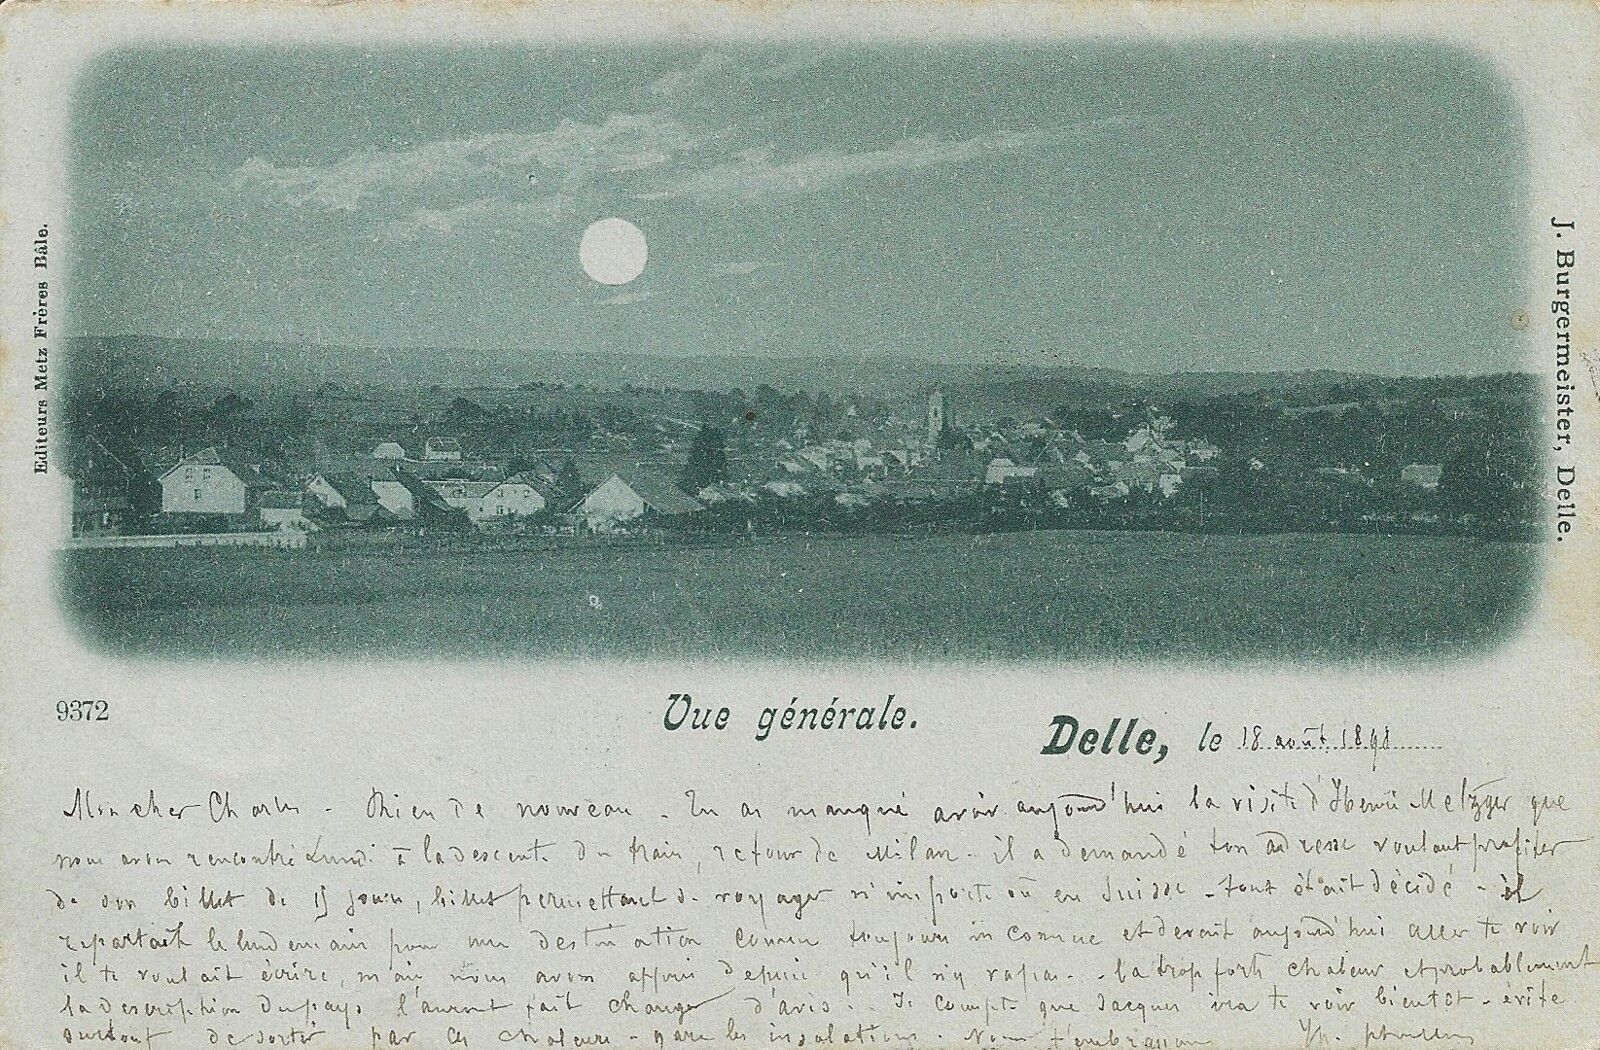 Editeurs Metz Frères Bâle.
J. Burgermeister, Delle.
9372
Vue générale.
Delle, le 18 août 1898
Mon cher Charles - Rien de nouveau - Tu as manqué avoir aujourd'hui la visite d'Henri Metzger que
nous avons rencontré Lundi à la descente du train, retour de Milan - il a demandé ton adresse voulant profiter
de son billet de 15 jours, billet permettant de voyager n'importe où en Suisse - tout était décidé - il
repartait le lendemain pour une destination comme toujours inconnue et devait aujourd'hui aller te voir
il te voulait écrire, mais nous avons appris depuis qu'il n'y - la trop forte chaleur et probablement
la description du pays l'auront fait changer d'avis - Je compte que Jacques ira te voir bientôt - évite
surtout de sortir par ces chaleurs - gare les insolations - Nous t'embrassons